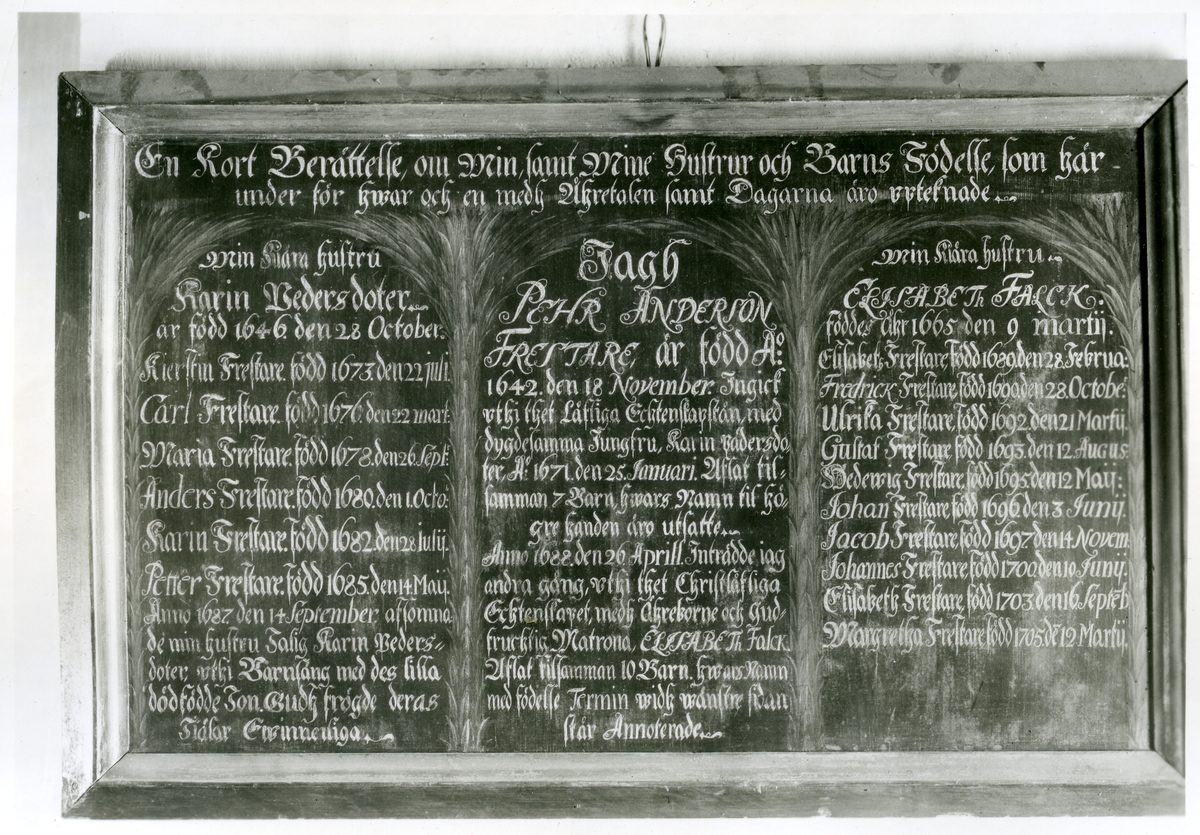 En Kort Berättelse, om Min, samt Mine Hustrur och Barns Födelse, som här
under för hwar och en medh Åhretalen samt Dagarna äro vpteknade
Min Kiära hustru
Karin Pedersdoter
är född 1646 den 28 October.
Kierstin Frestare. född 1673. den 22 juli.
Carl Frestare. född 1676 den 22 mart.
Maria Frestare. född 1678. den 26. Sept:
Anders Frestare. född 1680. den 1. Octo:
Karin Frestare. född 1682. den 28 iulij.
Petter Frestare. född 1685. den 14 Maij.
Anno 1687 den 14 September. afsomna
de min hustru Salig Karin Peders-
doter, vthi Barnsäng med des lilla
dödfödde Son. Gudh frögde deras
Siälar Ewinneliga.
Jagh
PEHR ANDERSON
FRESTARE är född A:o
1642. den 18 November. Ingick
vthi thet Låfliga Echtenskapstån, med
dygdesamma Jungfru, Karin Pädersdo
ter. A:o 1671. den 25. Januari. Aflat til-
samman 7 Barn, hwars Namn til hö-
gre handen äro utsatte.
Anno 1688. den 26 Aprill. Inträdde jag
andra gång, vthi thet Christlåfliga
Echtenskapet, medh Ährekorne och Gud-
fruchtig Matrona, ELISABETh Falck.
Aflat tilsamman 10 Barn. hwars Namn
med födelse Termin widh wänstre sidan
står Annoterade.
Min Kiära hustru.
ELISABETh FALCK.
föddes åhr 1665. den 9 martij.
Elisabeth Frestare, född 1689. den 28. Februa:
Fredrick Frestare, född 1690. den 28. Octobe:
Ulrika Frestare, född 1692. den 21 Martij.
Gustaf Frestare, född 1693. den 12. Augus:
Hedewig Frestare, född 1695. den 12 Maij:
Johan Frestare, född 1696. den 3. Junij.
Jacob Frestare, född 1697. den 14. Novem.
Johannes Frestare, född 1700. den 10. Junij.
Elisabeth Frestare, född 1703. den 16. Septeb
Margretha Frestare, född 1705. den 12 Martij.